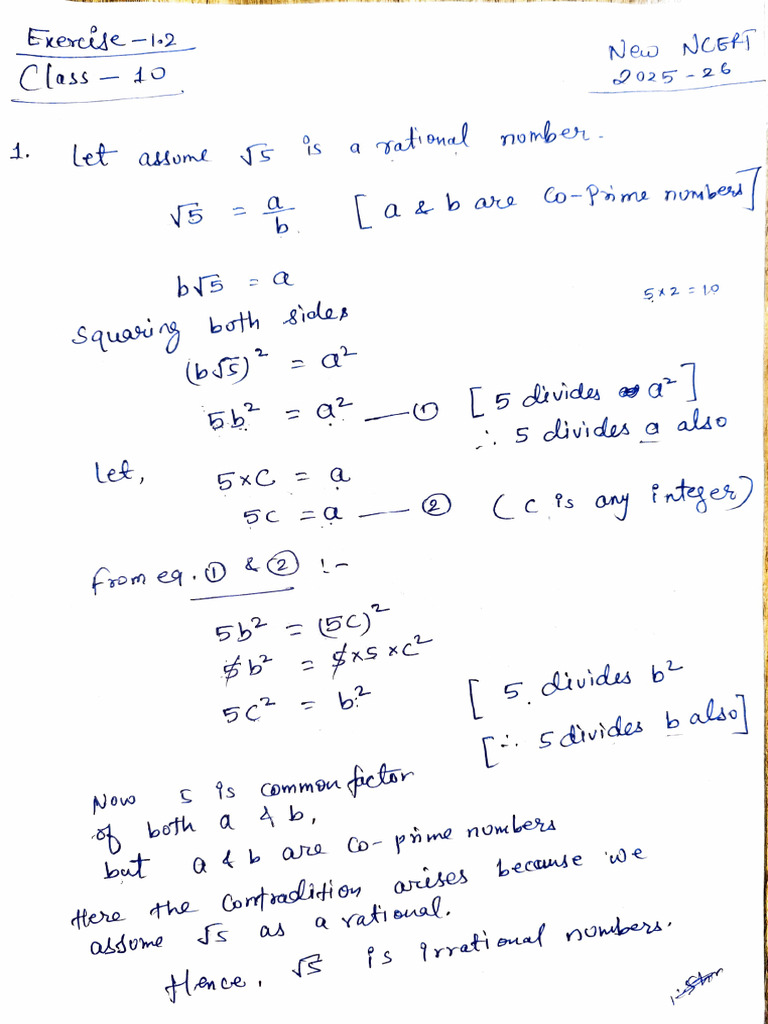 Exercise - 1.2
Class - 10
New NCERT
2025-26
1. Let assume √5 is a rational number.
√5 = a/b [a & b are Co-Prime numbers]
b√5 = a
5×2 = 10
Squaring both sides
(b√5)² = a²
5b² = a² —— ① [5 divides a²]
∴ 5 divides a also
Let, 5×C = a
5C = a —— ② (C is any integer)
from eq. ① & ② :-
5b² = (5C)²
5b² = 5×5×C²
5C² = b² [5 divides b²
[∴ 5 divides b also]
Now 5 is common factor
of both a & b,
but a & b are co-prime numbers
Here the Contradition arises because we
assume √5 as a rational.
Hence, √5 is irrational numbers.